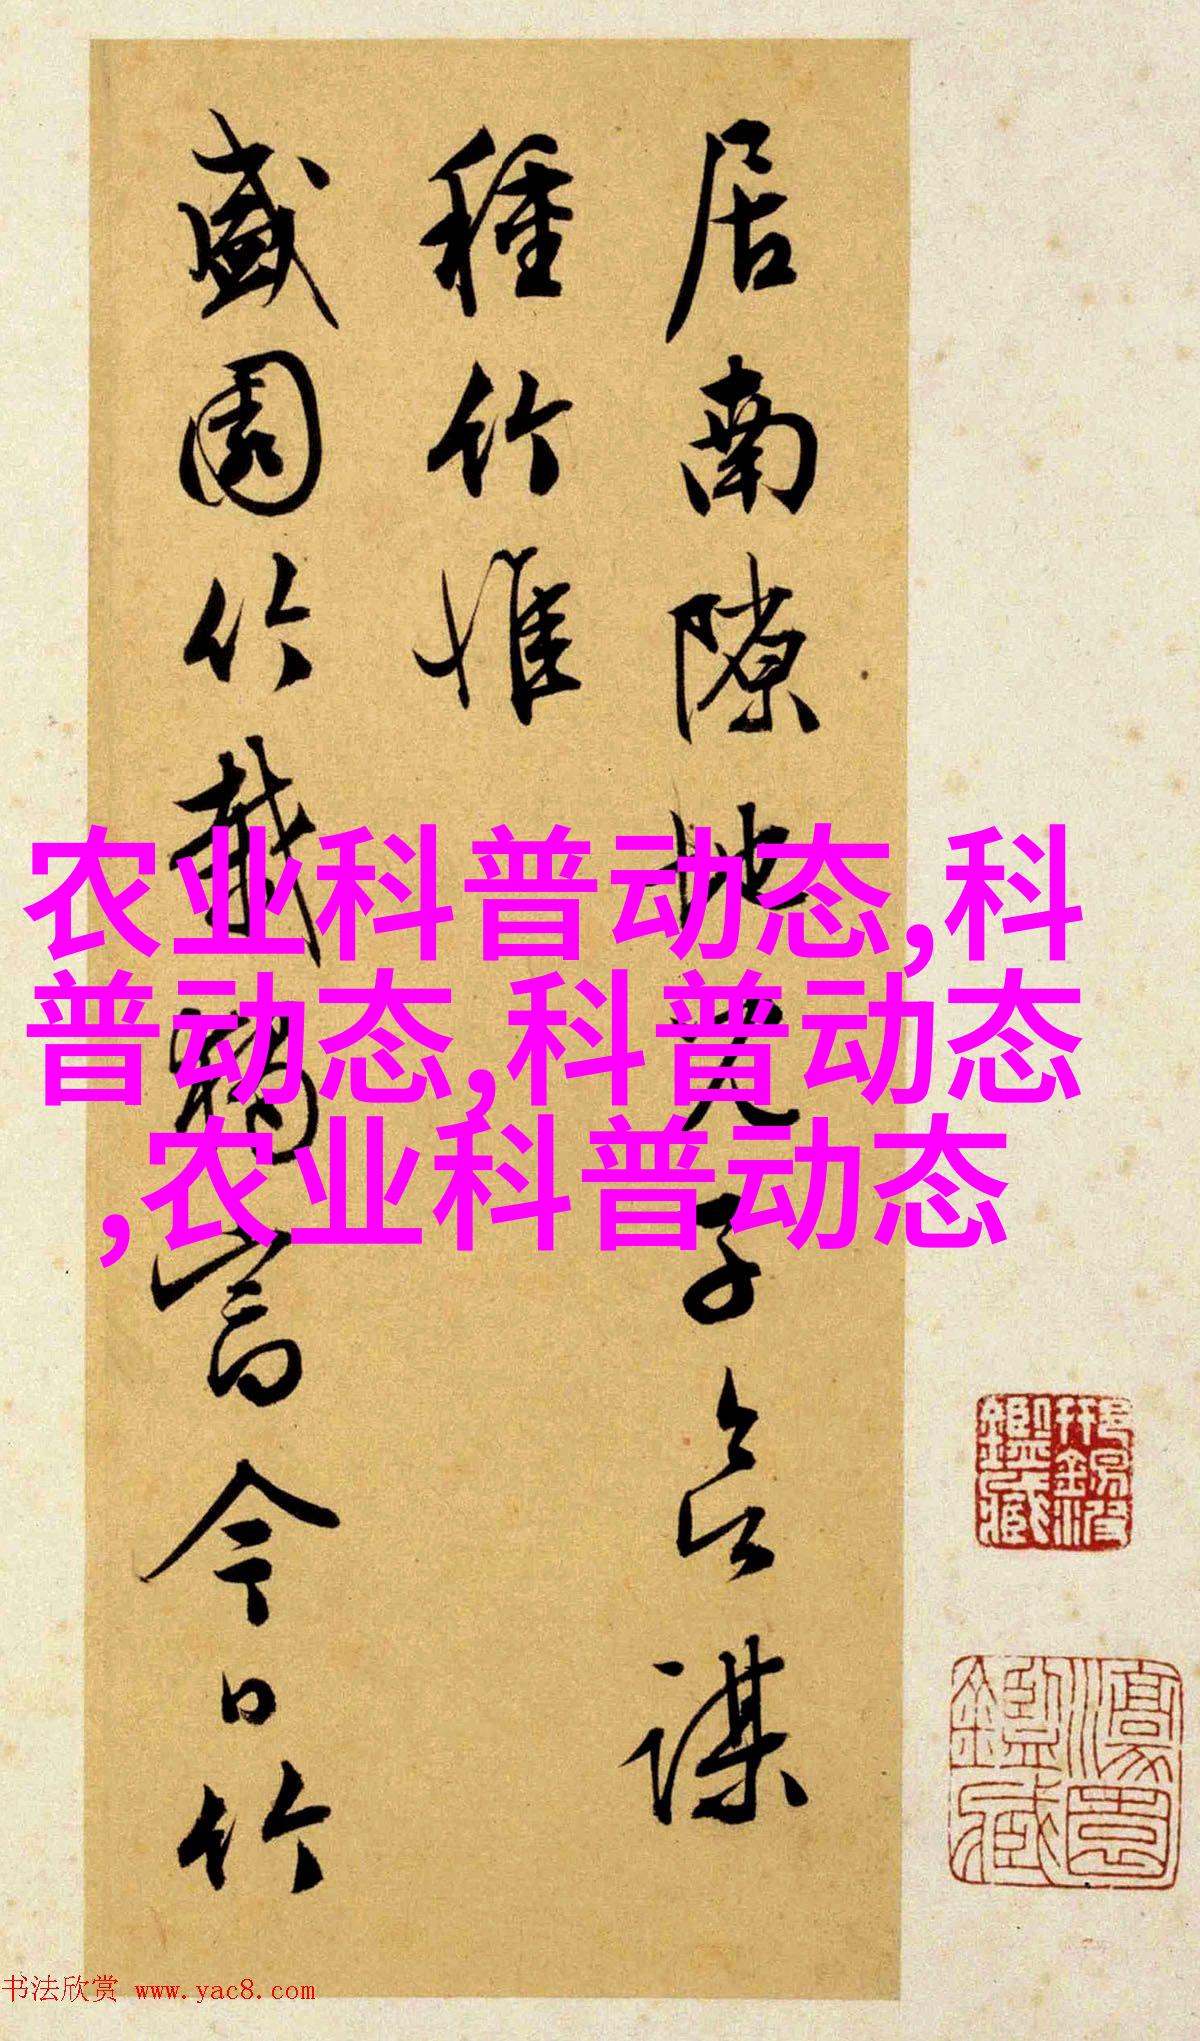 居南隙地兒子謀
種竹惟
盛園竹今日竹
农业科普动态,科
普动态,科普动态
,农业科普动态
鑑藏
鑑藏
书法欣赏 www.yac8.com